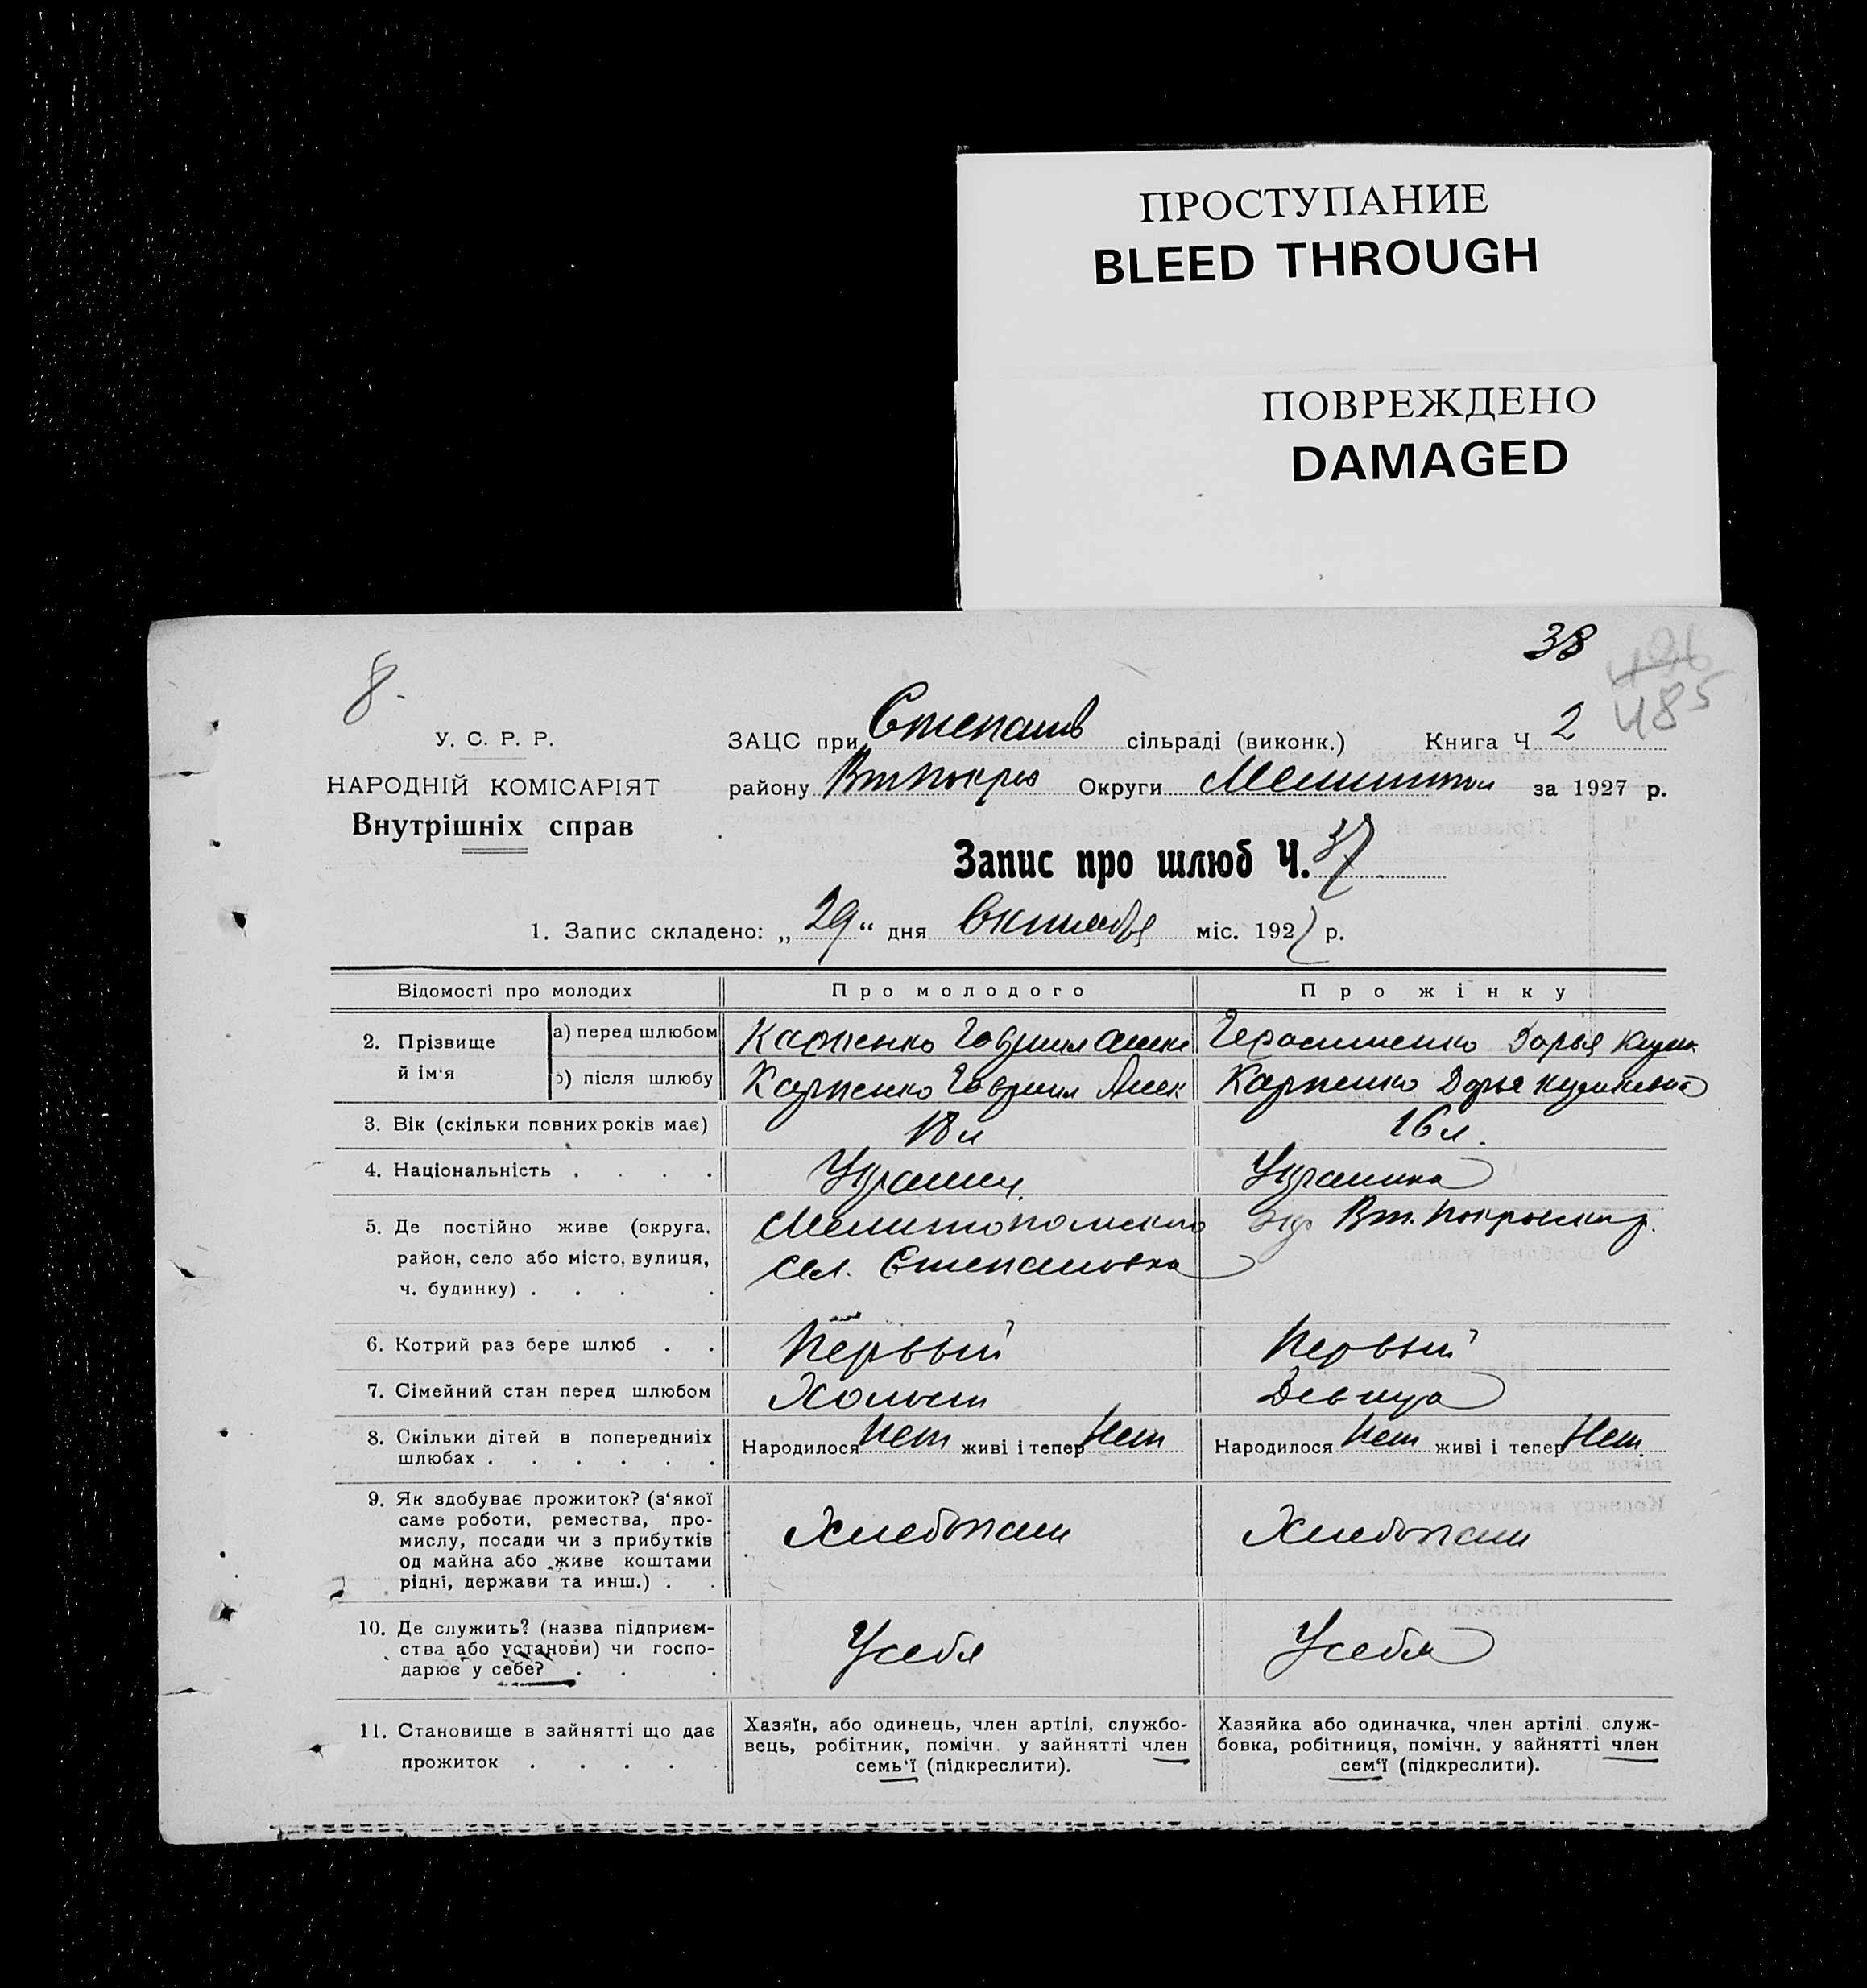 ПРОСТУПАНИЕ
BLEED THROUGH
ПОВРЕЖДЕНО
DAMAGED
38
485
8.
У. С. Р. Р.
НАРОДНІЙ КОМІСАРІЯТ
Внутрішніх справ
ЗАЦС при Степанов сільраді (виконк.) Книга Ч 2
району Вт Покров Округи Мелитоп за 1927 р.
Запис про шлюб Ч. 37
1. Запис складено: „ 29 “ дня Октября міс. 1927 р.
Відомості про молодих Про молодого Про жінку
2. Прізвище й ім'я
а) перед шлюбом Карпенко Гавриил Герасименко Дарья Кузм
б) після шлюбу Карпенко Гавриил Алек Карпенко Дарья Кузминовна
3. Вік (скільки повних років має) 18 л 16 л.
4. Національність . . . . Украинец Украинка
5. Де постійно живе (округа, район, село або місто, вулиця, ч. будинку) . . . .
Мелитопольского окр Вт. Покровск р.
сел. Степановка
6. Котрий раз бере шлюб . . Первый Первый
7. Сімейний стан перед шлюбом Холост Девица
8. Скільки дітей в попередніх шлюбах . . . . . .
Народилося Нет живі і тепер Нет Народилося Нет живі і тепер Нет
9. Як здобуває прожиток? (з'якої
саме роботи, ремества, про-
мислу, посади чи з прибутків
од майна або живе коштами
рідні, держави та инш.) . .
Хлебопаш Хлебопаш
10. Де служить? (назва підприєм-
ства або установи) чи госпо-
дарює у себе? . . .
У себя У себя
11. Становище в зайнятті що дає
прожиток . . . . .
Хазяїн, або одинець, член артілі, службо-
вець, робітник, помічн. у зайнятті член
семь'ї (підкреслити).
Хазяйка або одиначка, член артілі. служ-
бовка, робітниця, помічн. у зайнятті член
сем'ї (підкреслити).